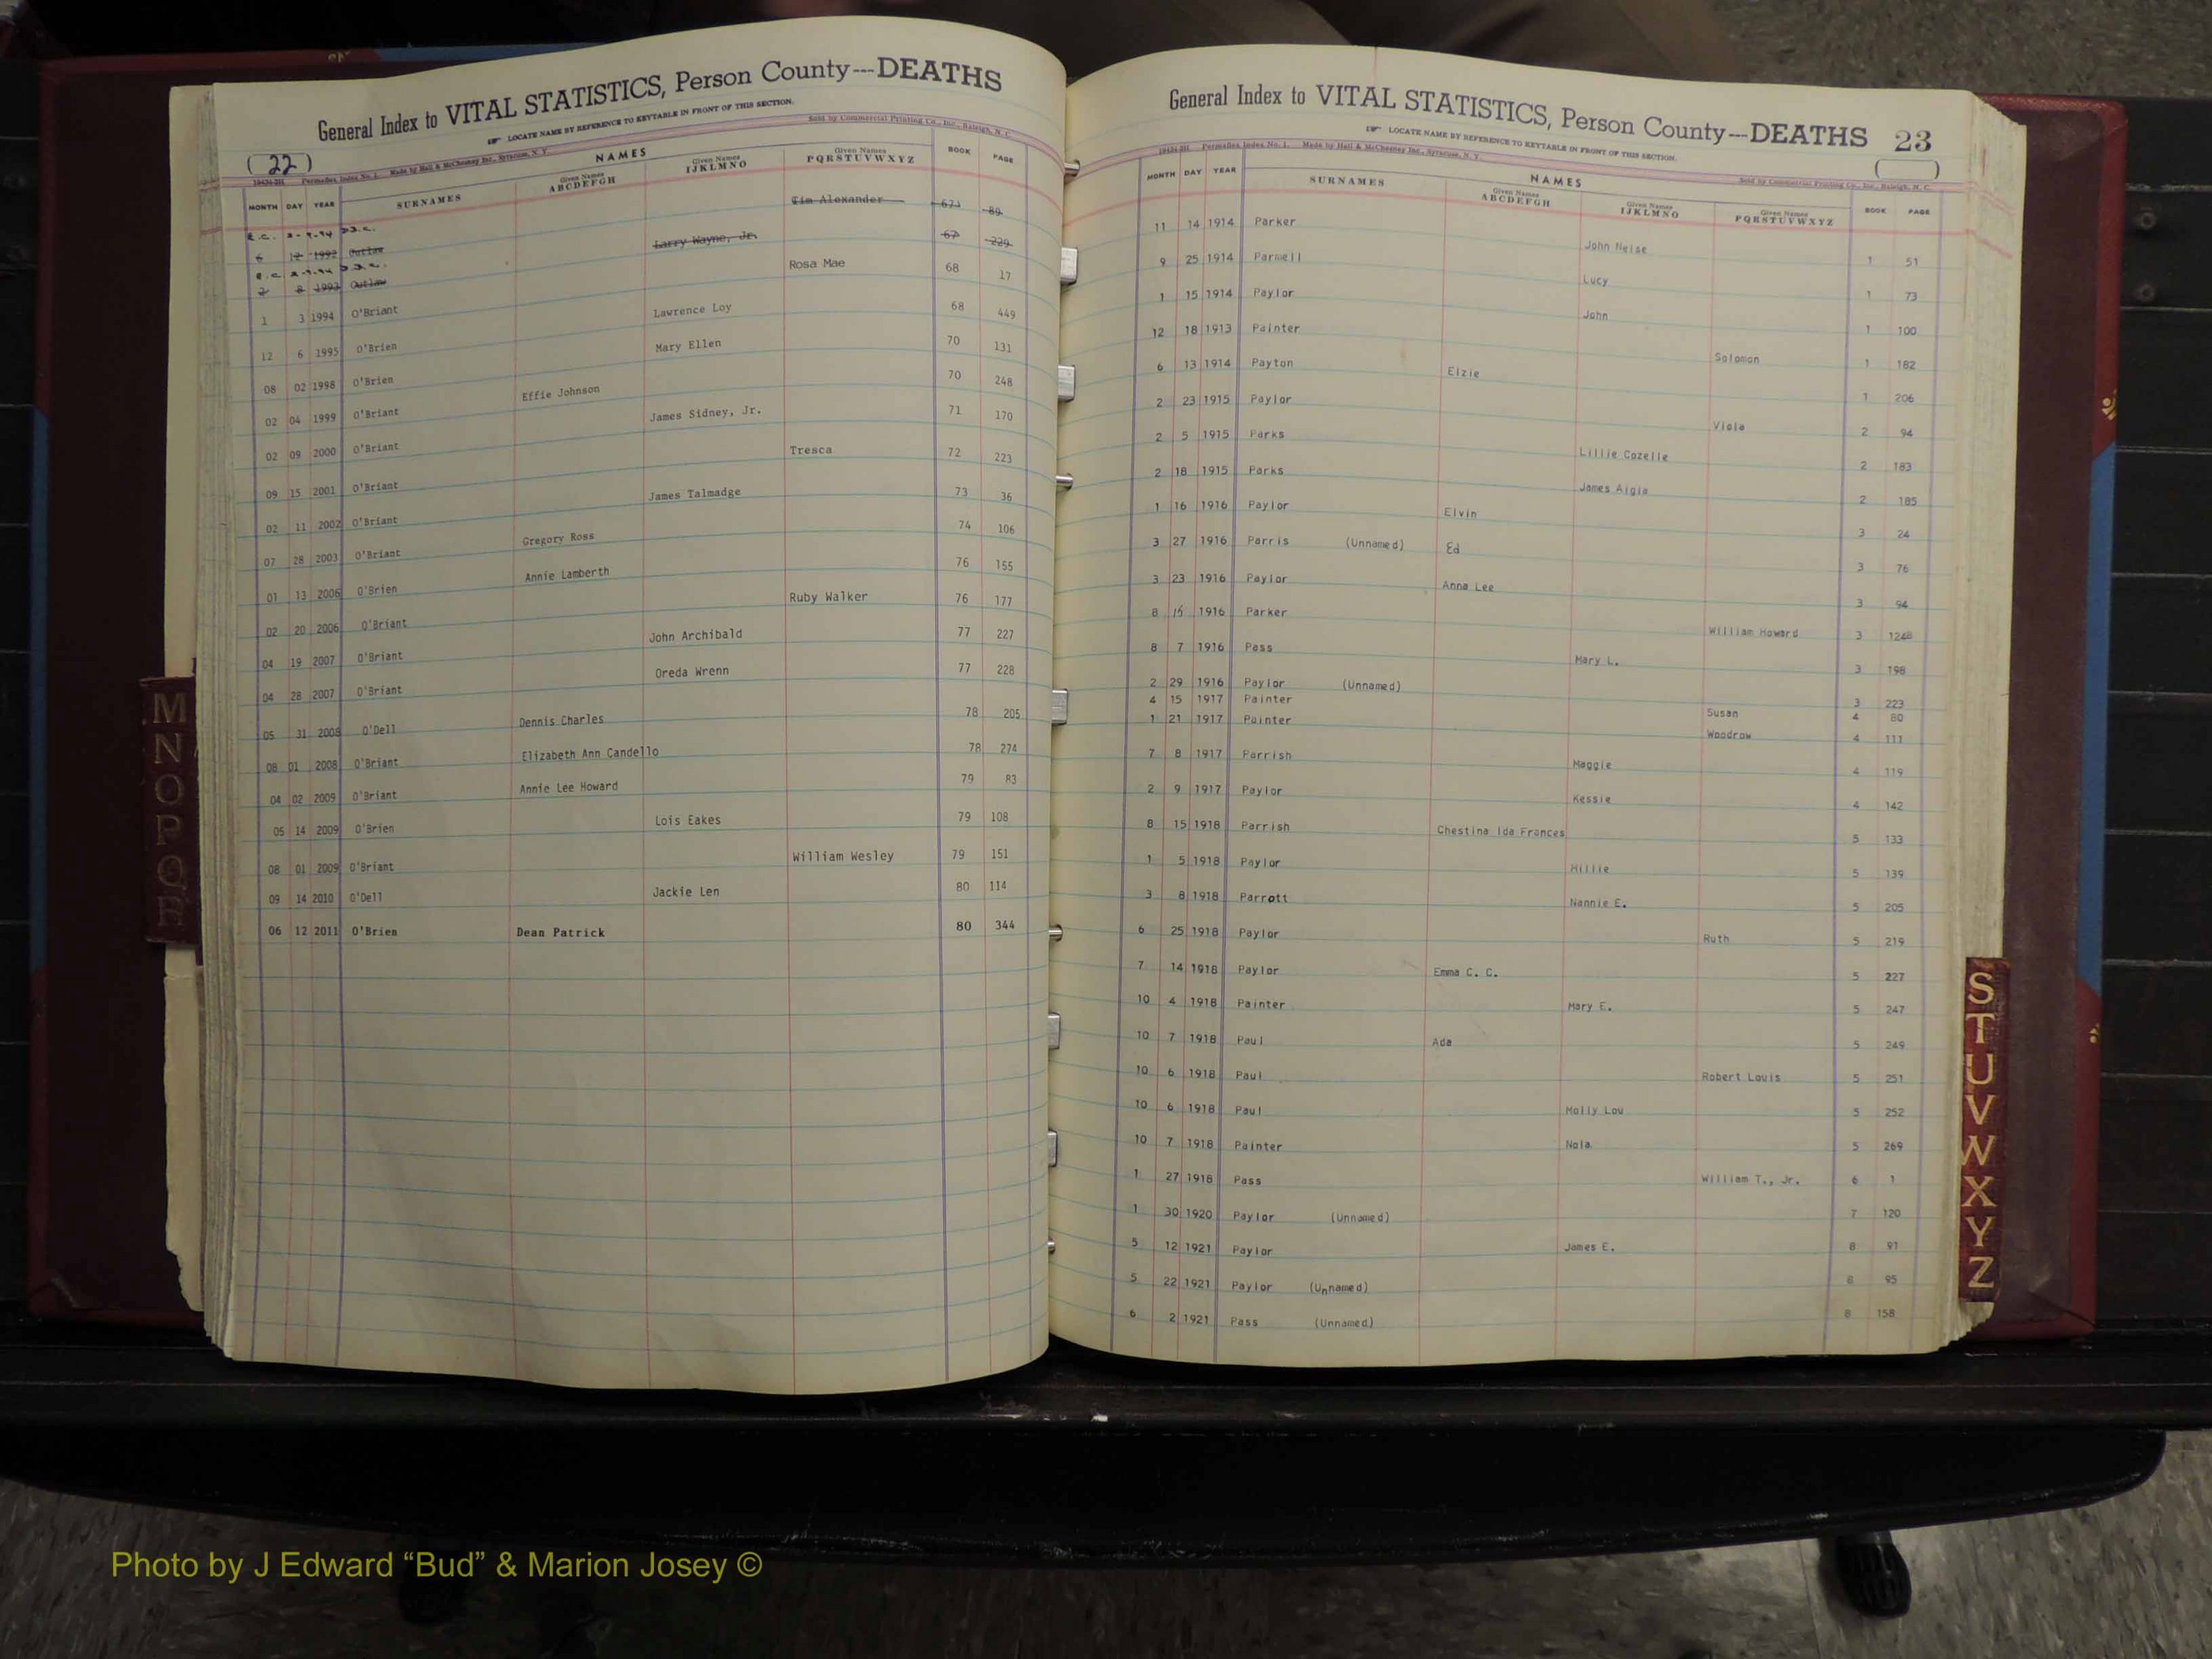 General Index to VITAL STATISTICS, Person County---DEATHS
LOCATE NAME BY REFERENCE TO KEYTABLE IN FRONT OF THIS SECTION.
Sold by Commercial Printing Co., Inc., Raleigh, N. C.
(22)
Made by Hall & McChesney Inc., Syracuse, N. Y.
NAMES
MONTH DAY YEAR SURNAMES Given Names ABCDEFGH Given Names IJKLMNO Given Names PQRSTUVWXYZ BOOK PAGE
6 12 1992 Outlaw Tim Alexander 89
2 8 1993 Outlaw Larry Wayne, Jr. 67 229
1 3 1994 O'Briant Rosa Mae 68 17
12 6 1995 O'Brien Lawrence Loy 68 449
08 02 1998 O'Brien Mary Ellen 70 131
02 04 1999 O'Briant Effie Johnson 70 248
02 09 2000 O'Briant James Sidney, Jr. 71 170
09 15 2001 O'Briant Tresca 72 223
02 11 2002 O'Briant James Talmadge 73 36
07 28 2003 O'Briant Gregory Ross 74 106
01 13 2006 O'Brien Annie Lamberth 76 155
02 20 2006 O'Briant Ruby Walker 76 177
04 19 2007 O'Briant John Archibald 77 227
04 28 2007 O'Briant Oreda Wrenn 77 228
05 31 2008 O'Dell Dennis Charles 78 205
08 01 2008 O'Briant Elizabeth Ann Candello 78 274
04 02 2009 O'Briant Annie Lee Howard 79 83
05 14 2009 O'Brien Lois Eakes 79 108
08 01 2009 O'Briant William Wesley 79 151
09 14 2010 O'Dell Jackie Len 80 114
06 12 2011 O'Brien Dean Patrick 80 344
M
N
O
P
Q
R
General Index to VITAL STATISTICS, Person County---DEATHS 23
LOCATE NAME BY REFERENCE TO KEYTABLE IN FRONT OF THIS SECTION.
Made by Hall & McChesney Inc., Syracuse, N. Y.
Sold by Commercial Printing Co., Inc., Raleigh, N. C.
NAMES
MONTH DAY YEAR SURNAMES Given Names ABCDEFGH Given Names IJKLMNO Given Names PQRSTUVWXYZ BOOK PAGE
11 14 1914 Parker John Neise 1 51
9 25 1914 Parnell Lucy 1 73
1 15 1914 Paylor John 1 100
12 18 1913 Painter Solomon 1 182
6 13 1914 Payton Elzie 1 206
2 23 1915 Paylor Viola 2 94
2 5 1915 Parks Lillie Cozelle 2 183
2 18 1915 Parks James Aigie 2 185
1 16 1916 Paylor Elvin 3 24
3 27 1916 Parris (Unnamed) Ed 3 76
3 23 1916 Paylor Anna Lee 3 94
8 15 1916 Parker William Howard 3 124B
8 7 1916 Pass Mary L. 3 198
2 29 1916 Paylor (Unnamed) 3 223
4 15 1917 Painter Susan 4 80
1 21 1917 Painter Woodrow 4 111
7 8 1917 Parrish Maggie 4 119
2 9 1917 Paylor Kessie 4 142
8 15 1918 Parrish Chestina Ida Frances 5 133
1 5 1918 Paylor Millie 5 139
3 8 1918 Parrott Nannie E. 5 205
6 25 1918 Paylor Ruth 5 219
7 14 1918 Paylor Emma C. C. 5 227
10 4 1918 Painter Mary E. 5 247
10 7 1918 Paul Ada 5 249
10 6 1918 Paul Robert Louis 5 251
10 6 1918 Paul Molly Lou 5 252
10 7 1918 Painter Nola 5 269
1 27 1918 Pass William T., Jr. 6 1
1 30 1920 Paylor (Unnamed) 7 120
5 12 1921 Paylor James E. 8 91
5 22 1921 Paylor (Unnamed) 8 95
6 2 1921 Pass (Unnamed) 8 158
S
T
U
V
W
X
Y
Z
Photo by J Edward “Bud” & Marion Josey ©